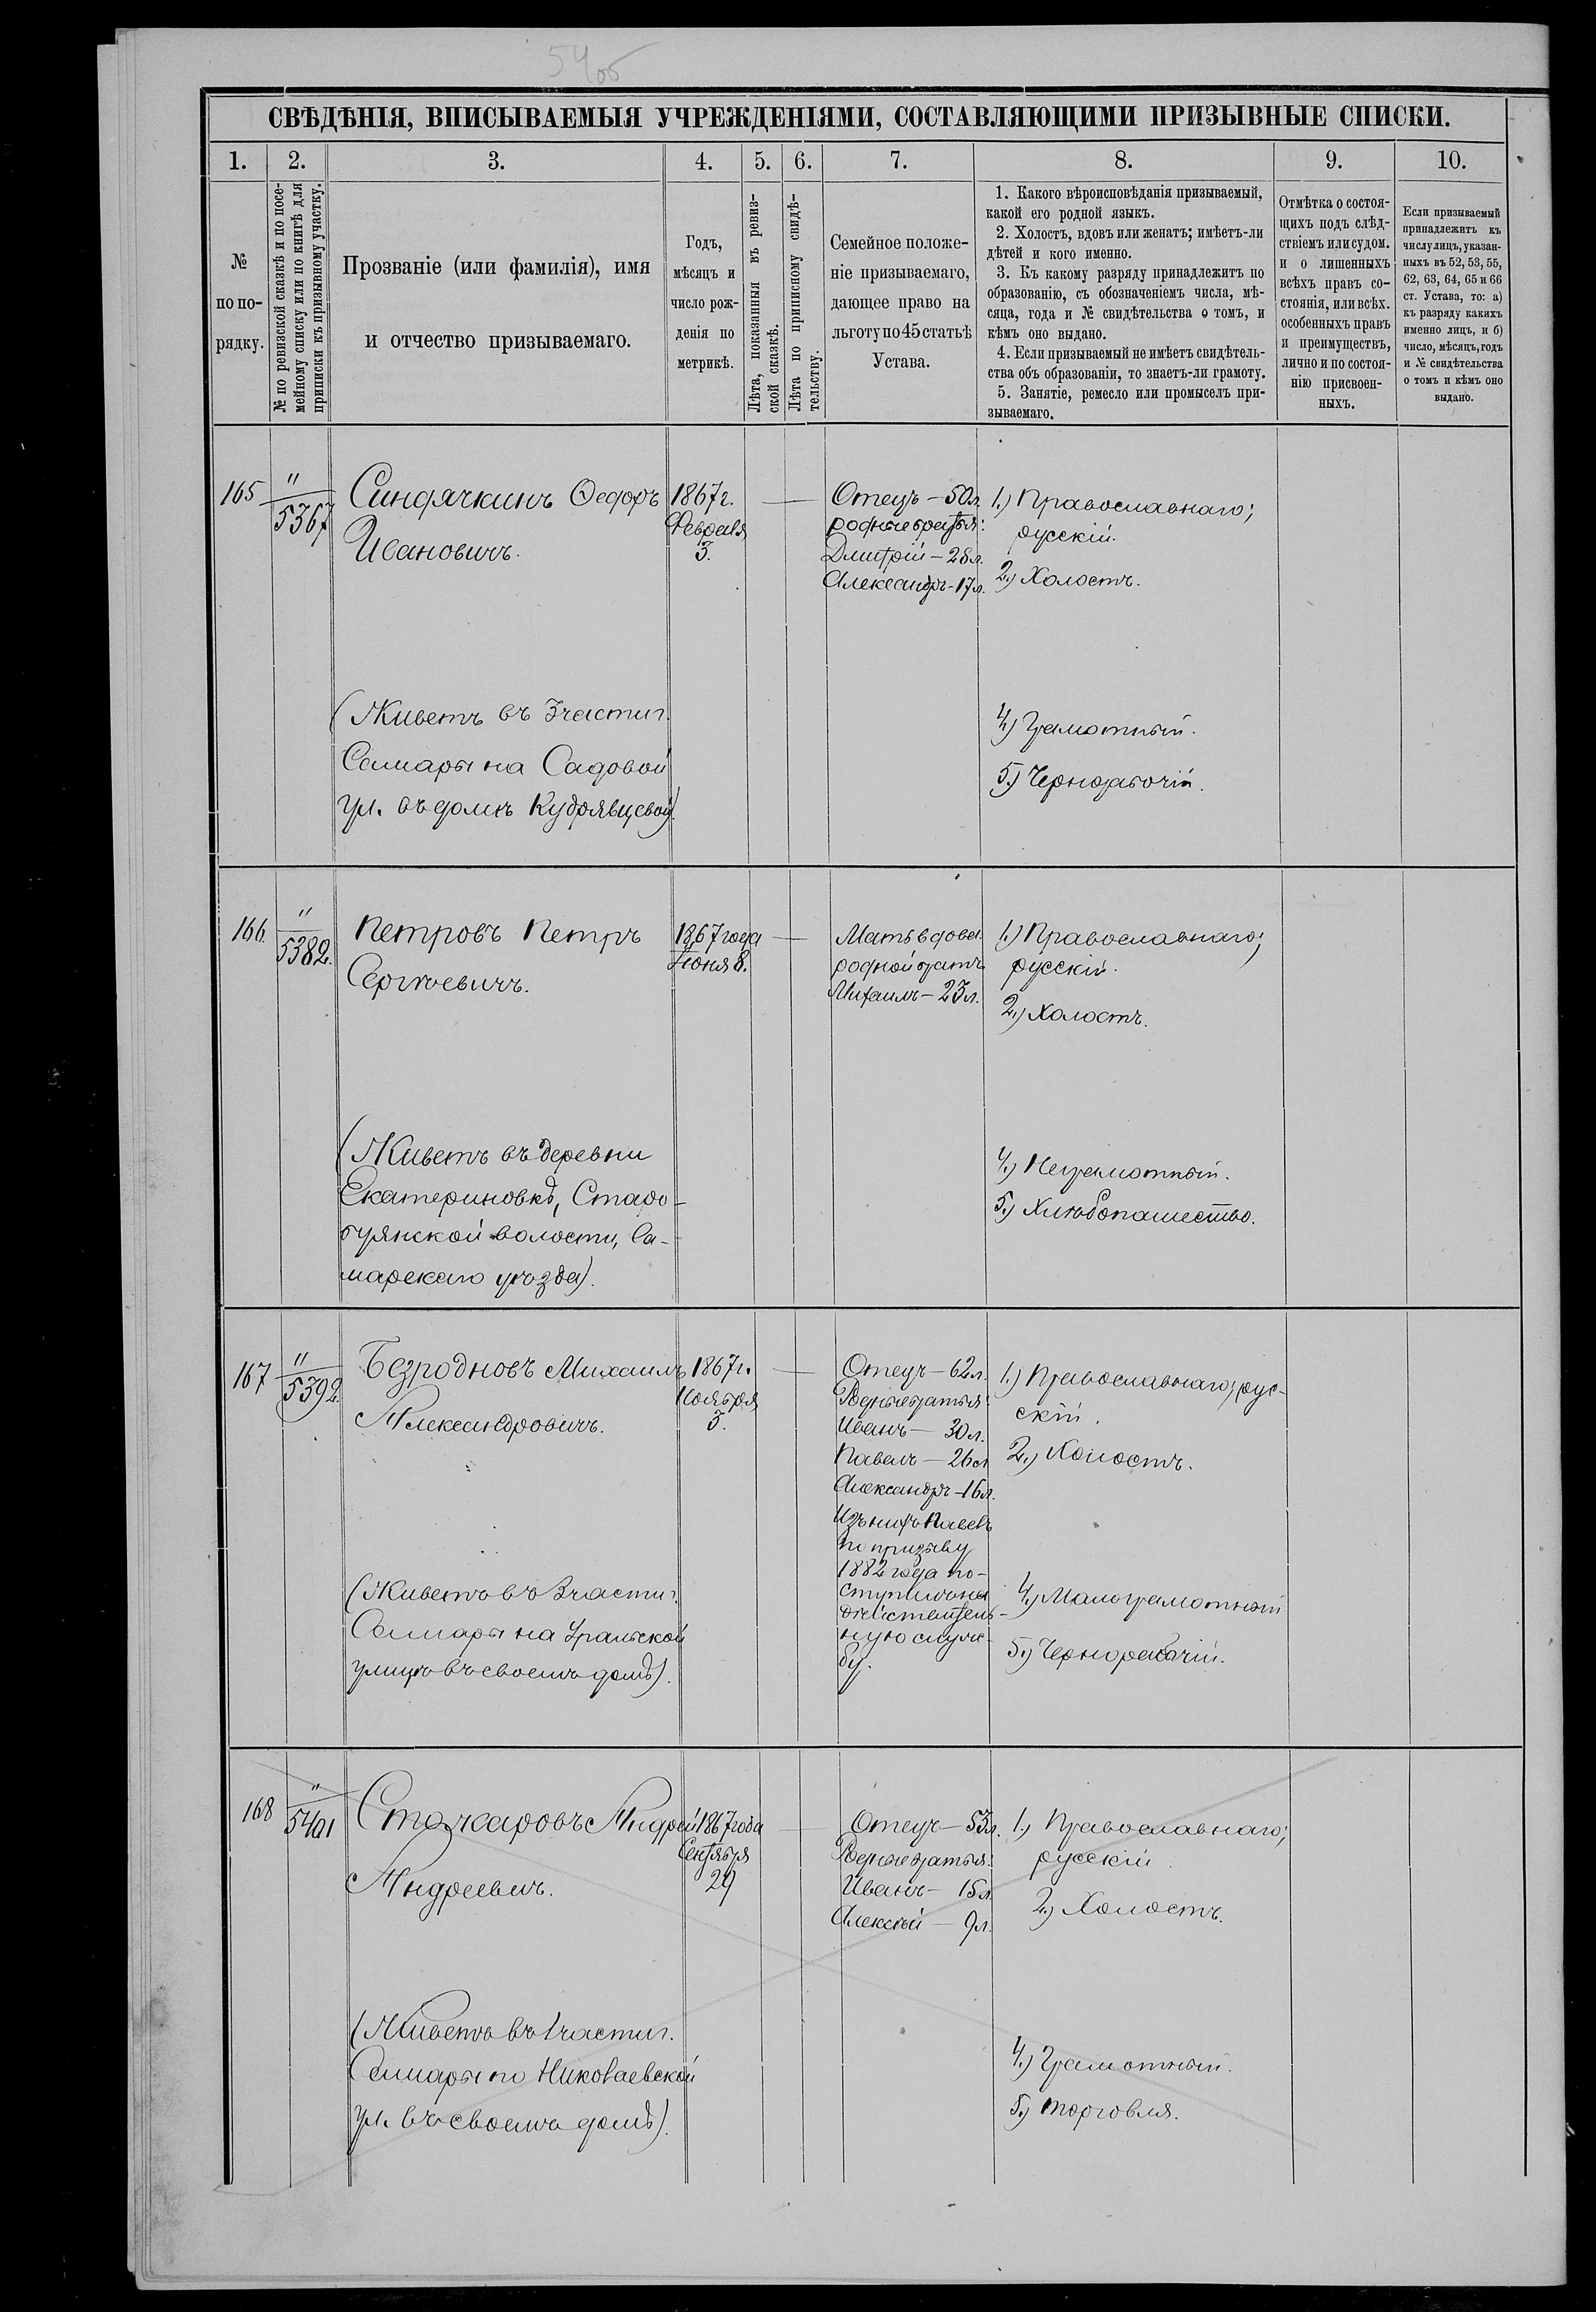 54об
СВѢДѢНІЯ, ВПИСЫВАЕМЫЯ УЧРЕЖДЕНІЯМИ, СОСТАВЛЯЮЩИМИ ПРИЗЫВНЫЕ СПИСКИ.
1.
2.
3.
4.
5.
6.
7.
8.
9.
10.
№
по по-
рядку.
№ по ревизской сказкѣ и по посе-
мейному списку или по книгѣ для
приписки къ призывному участку.
Прозваніе (или фамилія), имя
и отчество призываемаго.
Годъ,
мѣсяцъ и
число рож-
денія по
метрикѣ.
Лѣта, показанныя въ ревиз-
ской сказкѣ.
Лѣта по приписному свидѣ-
тельству.
Семейное положе-
ніе призываемаго,
дающее право на
льготу по 45 статьѣ
Устава.
1. Какого вѣроисповѣданія призываемый,
какой его родной языкъ.
2. Холостъ, вдовъ или женатъ; имѣетъ-ли
дѣтей и кого именно.
3. Къ какому разряду принадлежитъ по
образованію, съ обозначеніемъ числа, мѣ-
сяца, года и № свидѣтельства о томъ, и
кѣмъ оно выдано.
4. Если призываемый не имѣетъ свидѣтель-
ства объ образованіи, то знаетъ-ли грамоту.
5. Занятіе, ремесло или промыселъ при-
зываемаго.
Отмѣтка о состоя-
щихъ подъ слѣд-
ствіемъ или судом.
и о лишенныхъ
всѣхъ правъ со-
стоянія, или всѣх.
особенныхъ правъ
и преимуществъ,
лично и по состоя-
нію присвоен-
ныхъ.
Если призываемый
принадлежитъ къ
числу лицъ, указан-
ныхъ въ 52, 53, 55,
62, 63, 64, 65 и 66
ст. Устава, то: а)
къ разряду какихъ
именно лицъ, и б)
число, мѣсяцъ, годъ
и № свидѣтельства
о томъ и кѣмъ оно
выдано.
165
"
5367
Синдячкинъ Ѳедоръ
Ивановичъ.
1867 г.
Февраля
3.
—
Отецъ — 50 л.
родные братья:
Дмитрій — 28 л.
Александръ - 17 л.
1.) Православнаго;
русскій.
2.) Холостъ.
(Живетъ въ 3 части г.
Самары на Садовой
ул. въ домѣ Кудрявцевой).
4.) Грамотный.
5.) Чернорабочій.
166.
"
5382.
Петровъ Петръ
Сергѣевичъ.
1867 года
Іюня 8.
—
Мать вдова
родной братъ
Михаилъ — 23 л.
1.) Православнаго;
русскій.
2.) Холостъ.
(Живетъ въ деревни
Екатериновкѣ, Старо-
бурянской волости, Са-
марскаго уѣзда).
4.) Неграмотный.
5.) Хлѣбопашество.
167
"
5392.
Безродновъ Михаилъ
Александровичъ.
1867 г.
Ноября
3.
—
Отецъ — 62 л.
Родные братья:
Иванъ — 30 л.
Павелъ — 26 л.
Александръ - 16 л.
Изъ нихъ Павелъ
по призыву
1882 года по-
ступилъ на
дѣйствитель-
ную служ-
бу.
1.) Православнаго; рус-
скій.
2.) Холостъ.
(Живетъ въ 3 части г.
Самары на Уральской
улицѣ въ своемъ домѣ).
4.) Малограмотный
5.) Чернорабочій.
168
"
5401
Столяровъ Андрей
Андреевичъ.
1867 года
Сентября
29
—
Отецъ — 53 л.
Родные братья:
Иванъ — 15 л.
Алексѣй — 9 л.
1.) Православнаго;
русскій.
2.) Холостъ.
(Живетъ въ 1 части г.
Самары по Николаевской
ул. въ своемъ домѣ).
4.) Грамотный.
5.) Торговля.